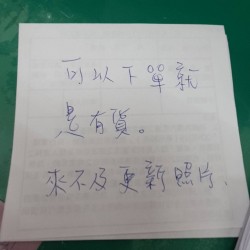 可以下單就
是有貨。
來不及更新照片.